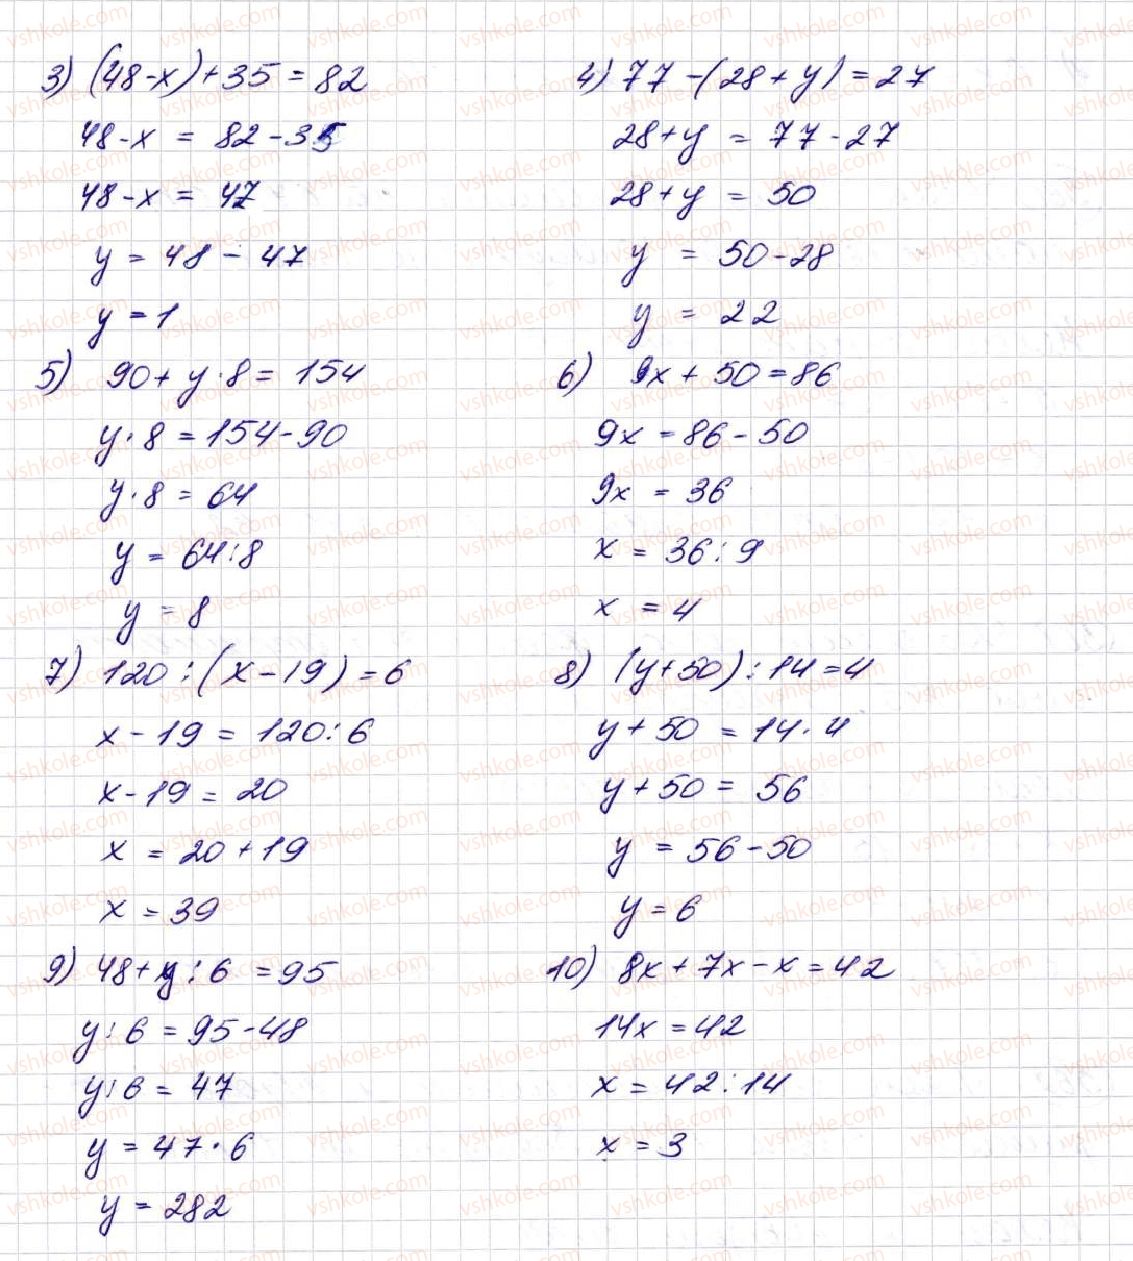 3) (48-x)+35=82
48-x = 82-35
48-x = 47
y = 48 - 47
y = 1
4) 77-(28+y)=27
28+y = 77-27
28+y = 50
y = 50-28
y = 22
5) 90+y·8=154
y·8=154-90
y·8=64
y = 64:8
y = 8
6) 9x+50=86
9x=86-50
9x = 36
x = 36:9
x = 4
7) 120:(x-19)=6
x-19=120:6
x-19=20
x=20+19
x=39
8) (y+50):14=4
y+50=14·4
y+50=56
y=56-50
y=6
9) 48+y:6=95
y:6=95-48
y:6=47
y=47·6
y=282
10) 8x+7x-x=42
14x=42
x=42:14
x=3
vshkole.com